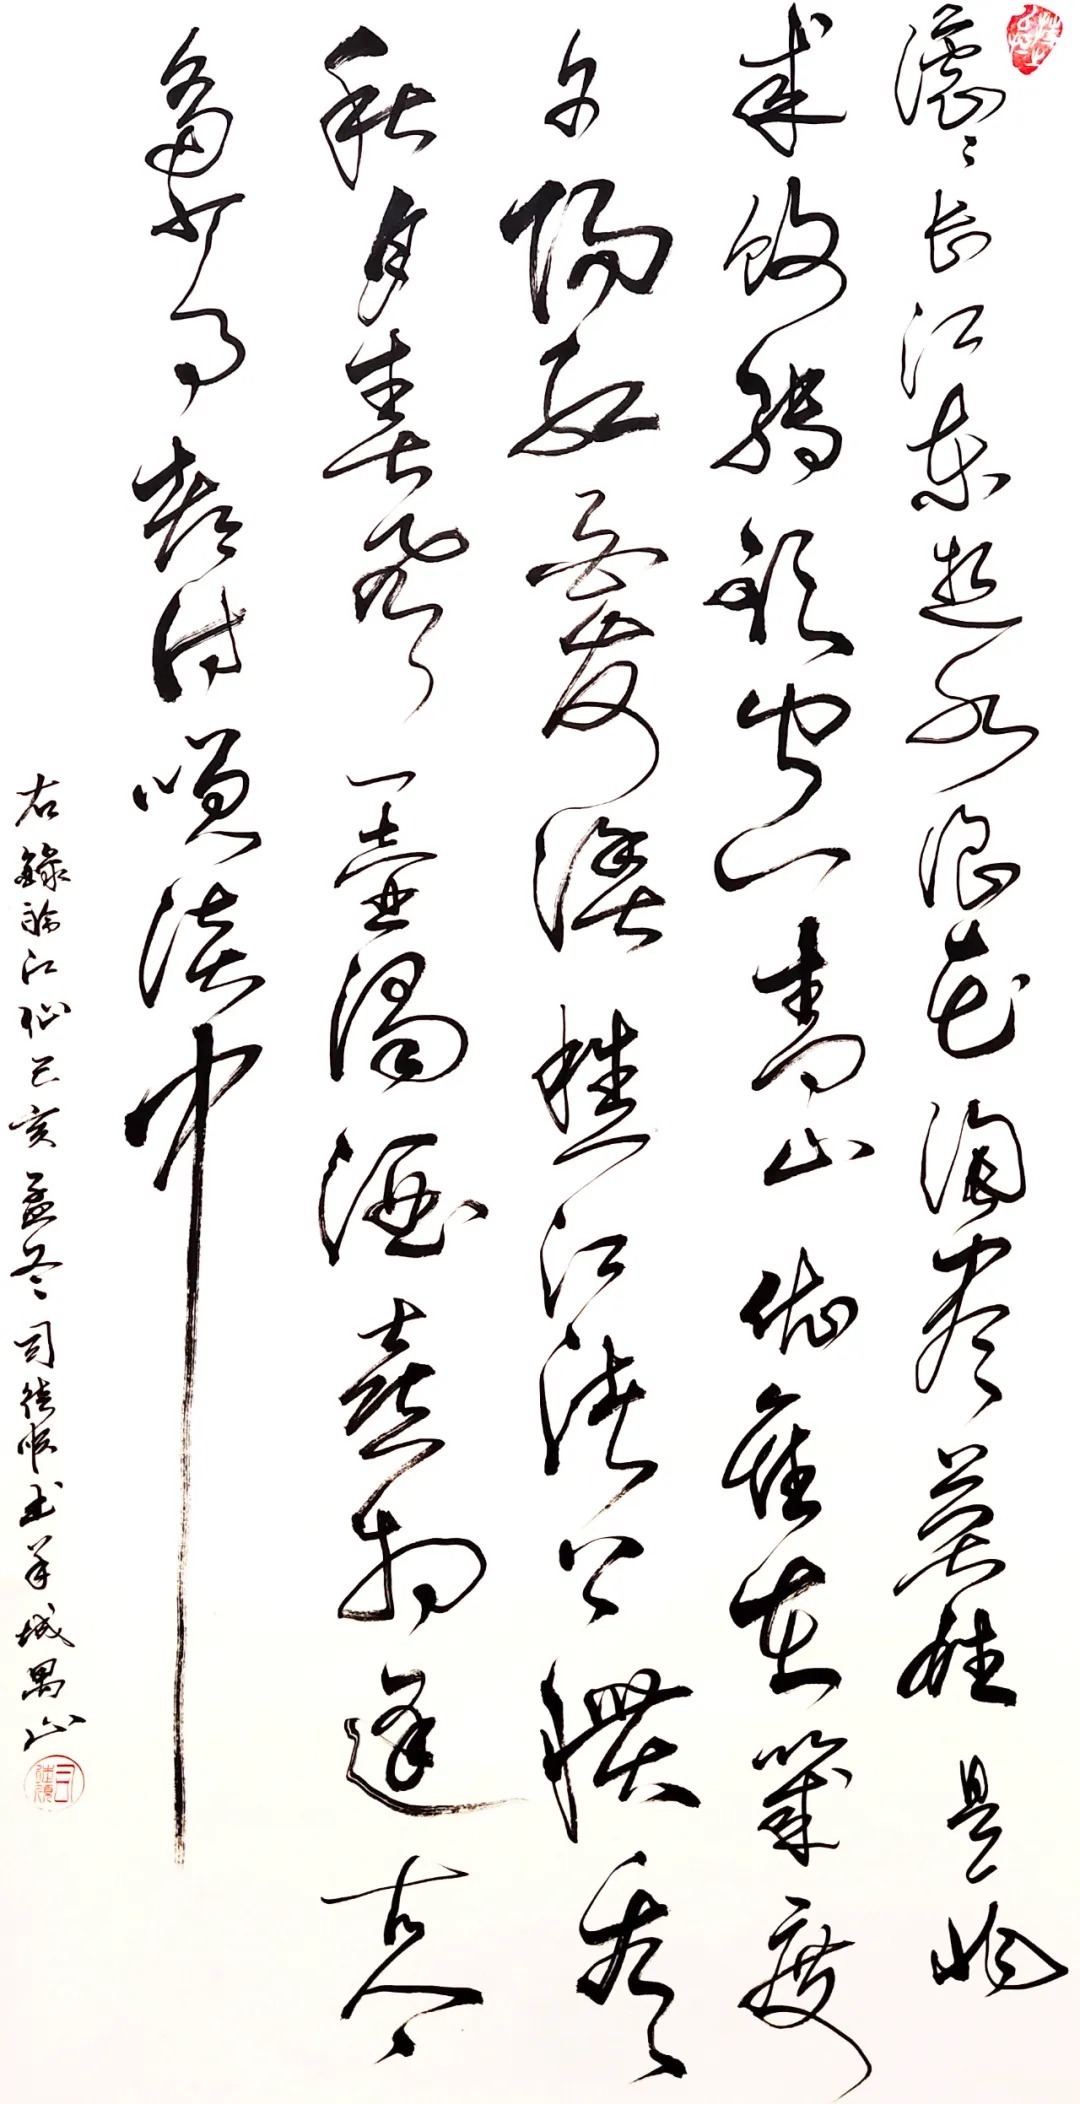 滚滚长江东逝水浪花淘尽英雄是非
成败转头空一青山依旧在几度
夕阳红白发渔樵江渚上惯看
秋月春风一壶浊酒喜相逢古今
多少事都付笑谈中
右录临江仙己亥孟冬司徒顺书羊城禺山